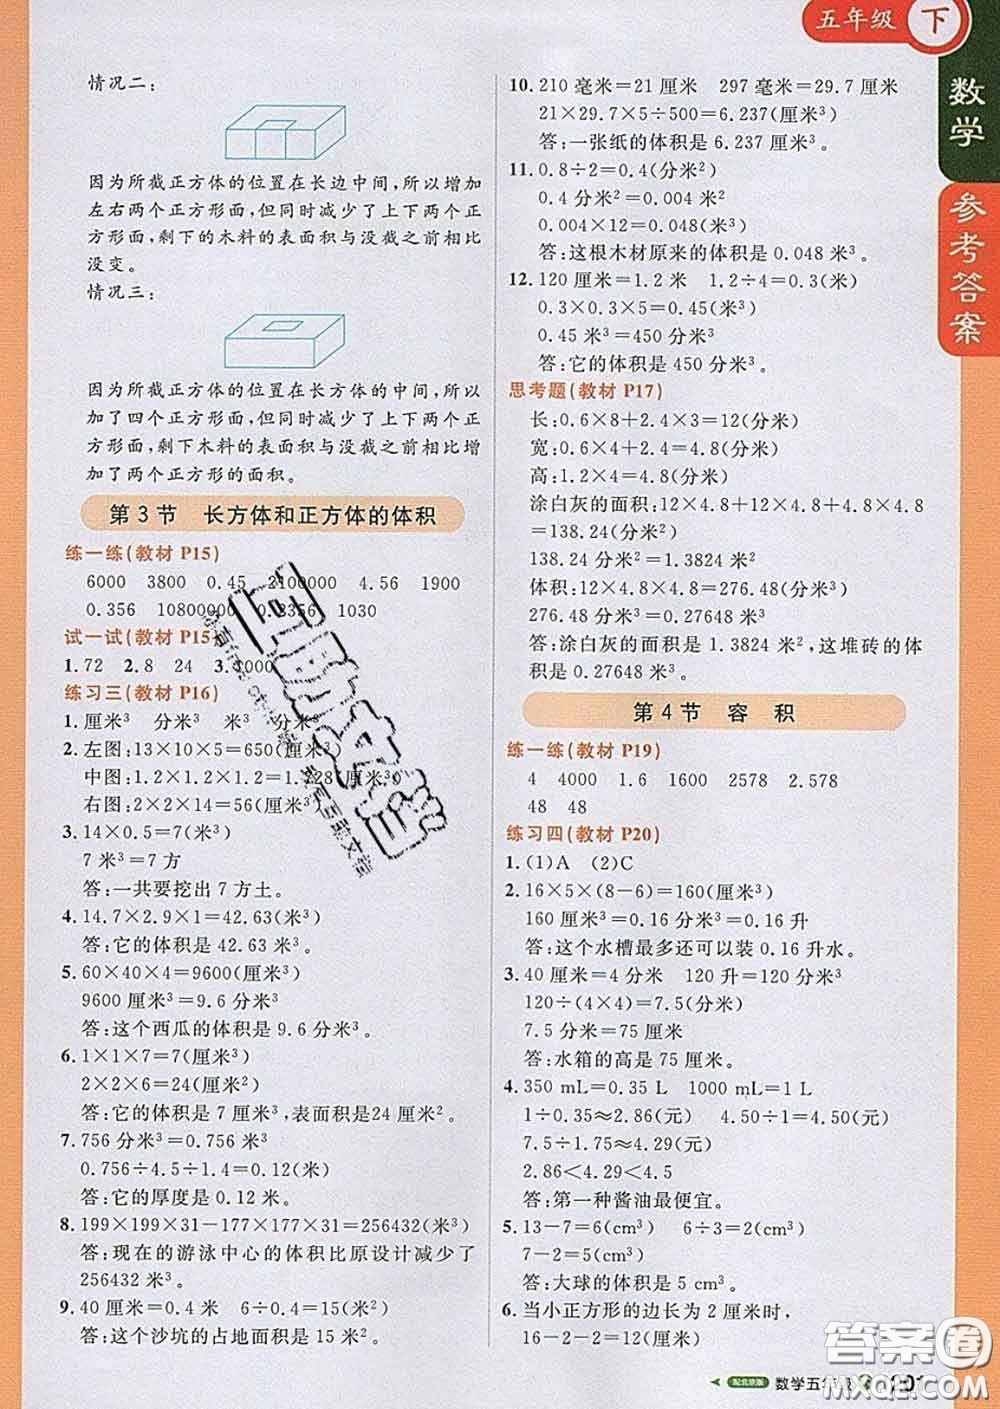 五年级 下
数学
参考答案
情况二:
因为所截正方体的位置在长边中间,所以增加
左右两个正方形面,但同时减少了上下两个正方
形面,剩下的木料的表面积与没截之前相比
没变。
情况三:
因为所截正方体的位置在长方体的中间,所以增
加了四个正方形面,但同时减少了上下两个正
方形面,剩下木料的表面积与没截之前相比增
加了两个正方形的面积。
第3节 长方体和正方体的体积
练一练(教材 P15)
6000 3800 0.45 2100000 4.56 1900
0.356 10800000 0.2356 1030
试一试(教材 P15)
1.72 2.8 24 3.
练习三(教材 P16)
1.厘米³ 分米³ 米³ 分米³
2.左图:13×10×5=650(厘米³)
中图:1.2×1.2×1.2=1.728(厘米³)
右图:2×2×14=56(厘米³)
3.14×0.5=7(米³)
7 米³=7 方
答:一共要挖出 7 方土。
4.14.7×2.9×1=42.63(米³)
答:它的体积是 42.63 米³。
5.60×40×4=9600(厘米³)
9600 厘米³=9.6 分米³
答:这个西瓜的体积是 9.6 分米³。
6.1×1×7=7(厘米³)
2×2×6=24(厘米²)
答:它的体积是 7 厘米³,表面积是24 厘米²。
7.756 分米³=0.756 米³
0.756÷4.5÷1.4=0.12(米)
答:它的厚度是 0.12 米。
8.199×199×31-177×177×31=256432(米³)
答:现在的游泳中心的体积比原设计减少了
256432 米³。
9.40 厘米=0.4 米 6÷0.4=15(米²)
答:这个沙坑的占地面积是 15 米²。
10.210 毫米=21 厘米 297 毫米=29.7 厘米
21×29.7×5÷500=6.237(厘米³)
答:一张纸的体积是 6.237 厘米³。
11.0.8÷2=0.4(分米²)
0.4 分米²=0.004 米²
0.004×12=0.048(米³)
答:这根木材原来的体积是 0.048 米³。
12.120 厘米=1.2 米 1.2÷4=0.3(米)
0.3×0.3×5=0.45(米³)
0.45 米³=450 分米³
答:它的体积是 450 分米³。
思考题(教材 P17)
长:0.6×8+2.4×3=12(分米)
宽:0.6×4+2.4=4.8(分米)
高:1.2×4=4.8(分米)
涂白灰的面积:12×4.8+12×4.8+4.8×4.8
=138.24(分米²)
138.24 分米²=1.3824 米²
体积:12×4.8×4.8=276.48(分米³)
276.48 分米³=0.27648 米³
答:涂白灰的面积是 1.3824 米²,这堆砖的体
积是 0.27648 米³。
第4节 容 积
练一练(教材 P19)
4 4000 1.6 1600 2578 2.578
48 48
练习四(教材 P20)
1.(1)A (2)C
2.16×5×(8-6)=160(厘米³)
160 厘米³=0.16 分米³=0.16 升
答:这个水槽最多还可以装 0.16 升水。
3.40 厘米=4 分米 120 升=120 分米³
120÷(4×4)=7.5(分米)
7.5 分米=75 厘米
答:水箱的高是 75 厘米。
4.350 mL=0.35 L 1000 mL=1 L
1÷0.35≈2.86(元) 4.50÷1=4.50(元)
7.5÷1.75≈4.29(元)
2.86<4.29<4.5
答:第一种酱油最便宜。
5.13-7=6(cm³) 6÷3=2(cm³)
7-2=5(cm³)
答:大球的体积是 5 cm³。
6.当小正方形的边长为 2 厘米时,
16-2-2=12(厘米)
配北京版 数学五年级
答案圈
MXQE.COM